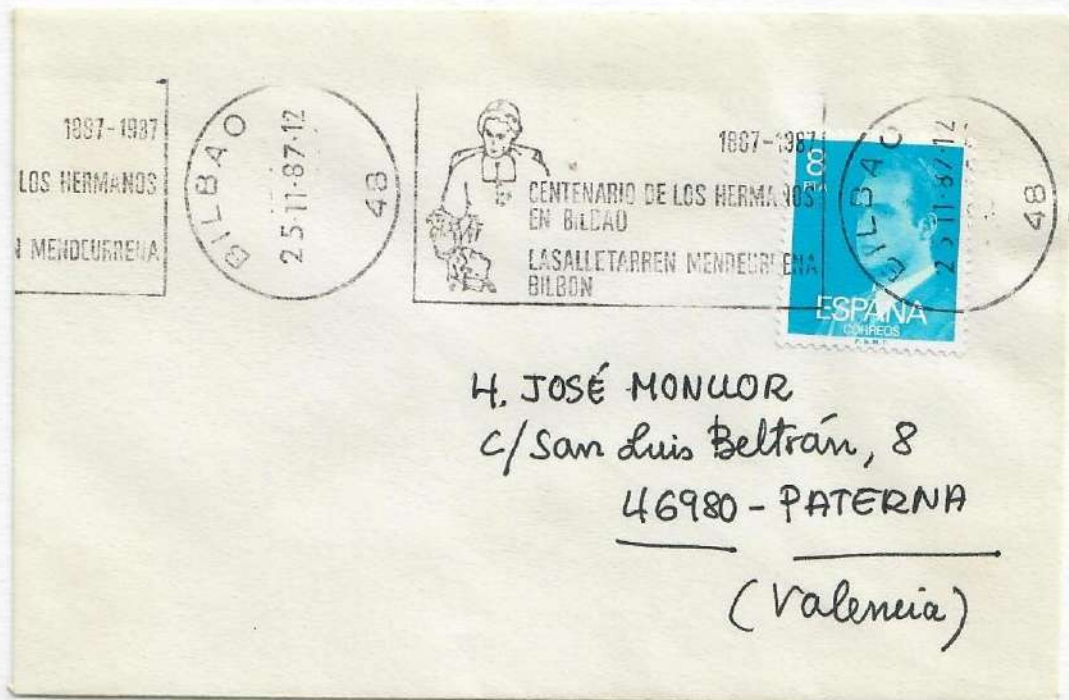 1887-1987
LOS HERMANOS
N MENDEURRENA
BILBAO
25·11·87·12
48
1887-1987
CENTENARIO DE LOS HERMANOS
EN BILBAO
LASALLETARREN MENDEURRENA
BILBON
BILBAO
25·11·87·12
48
8
PTA
ESPAÑA
CORREOS
F.N.M.T.
H. JOSÉ MONLLOR
C/ San Luis Beltrán, 8
46980 - PATERNA
(Valencia)